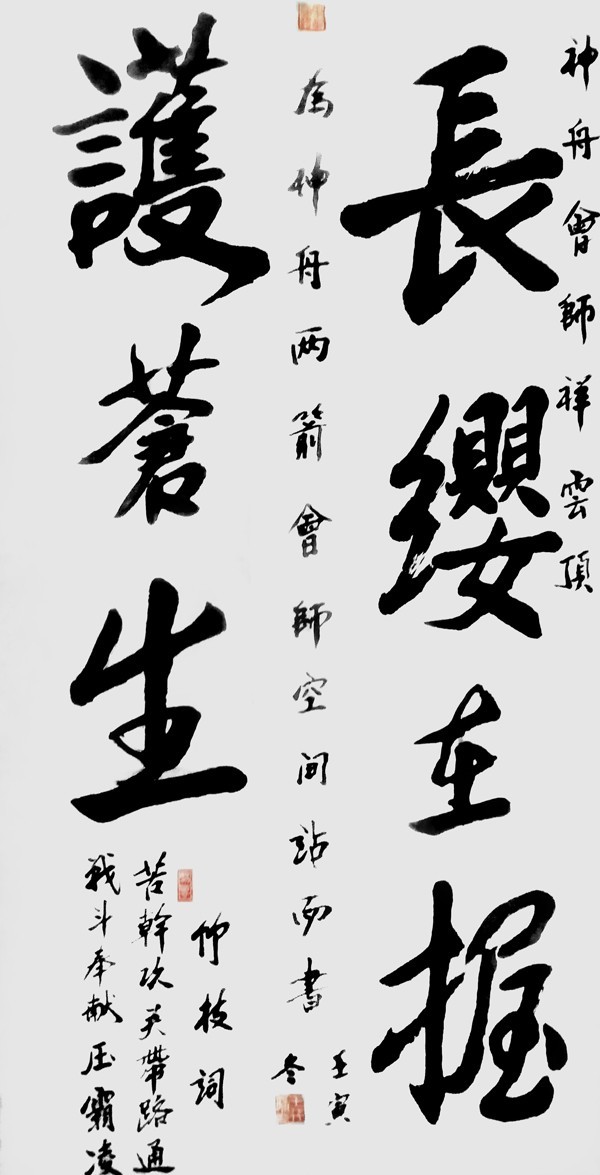 神舟會師祥雲頂
長纓在握
為神舟两箭會師空间站而書
壬寅
冬
護蒼生
仰技詞
苦幹攻关帶路通
戰斗奉献压霸凌